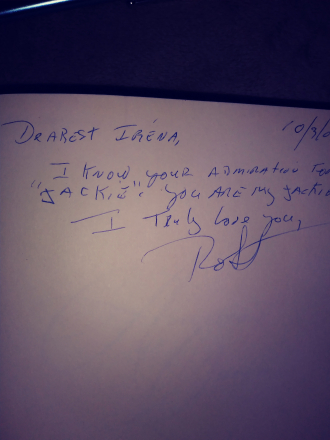 Dearest Iréna, 10/3/0
I know your admiration for
"Jackie". You are my Jackie
I truly love you,